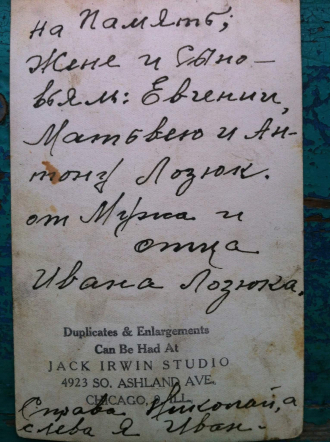 на Память;
Жене и Сыно-
вьям: Евгении,
Матвею и Ан-
тону Лозюк.
от Мужа и
отца
Ивана Лозюка.
Duplicates & Enlargements
Can Be Had At
JACK IRWIN STUDIO
4923 SO. ASHLAND AVE.
CHICAGO, ILL.
Справа Николай, а
слева Я Иван.